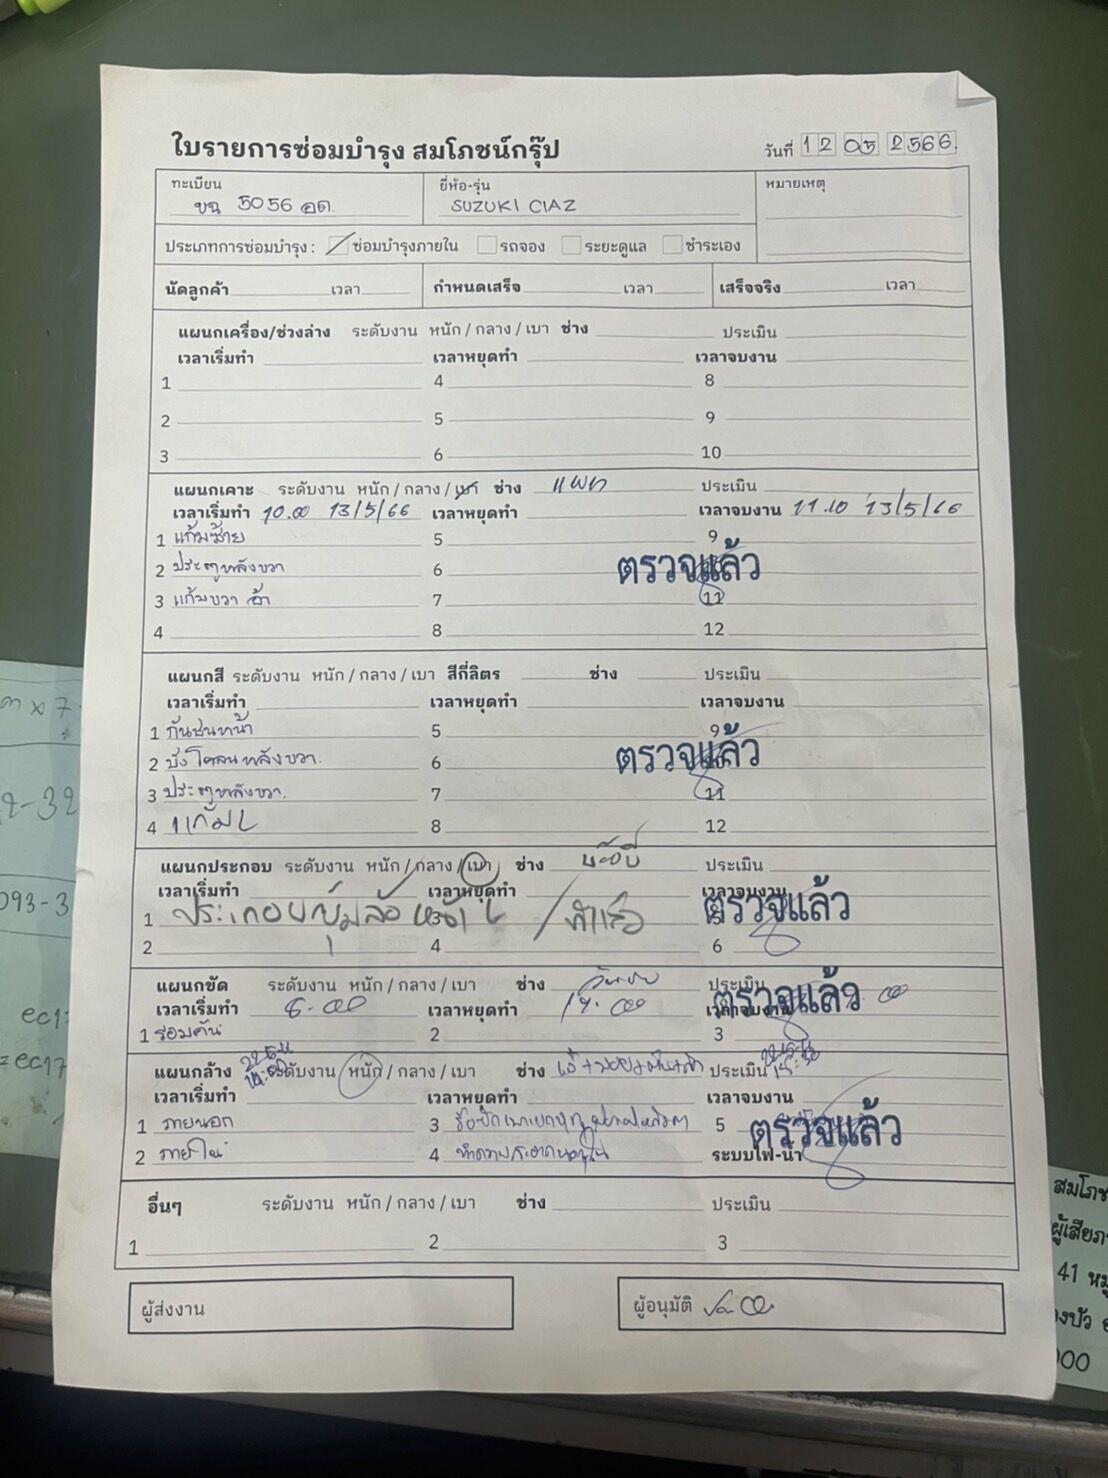 ใบรายการซ่อมบำรุง สมโภชน์กรุ๊ป
วันที่ 12 05 2566
ทะเบียน ยี่ห้อ-รุ่น หมายเหตุ
ขฉ 5056 อด. SUZUKI CIAZ
ประเภทการซ่อมบำรุง : ซ่อมบำรุงภายใน รถจอง ระยะดูแล ชำระเอง
นัดลูกค้า เวลา กำหนดเสร็จ เวลา เสร็จจริง เวลา
แผนกเครื่อง/ช่วงล่าง ระดับงาน หนัก / กลาง / เบา ช่าง ประเมิน
เวลาเริ่มทำ เวลาหยุดทำ เวลาจบงาน
1 4 8
2 5 9
3 6 10
แผนกเคาะ ระดับงาน หนัก / กลาง / เบา ช่าง ประเมิน
เวลาเริ่มทำ 10.00 13/5/66 เวลาหยุดทำ เวลาจบงาน 11.10 13/5/66
1 แก้มซ้าย 5 9
2 ประตูหลังขวา 6 ตรวจแล้ว
3 แก้มขวา 7 11
4 8 12
แผนกสี ระดับงาน หนัก / กลาง / เบา สีกี่ลิตร ช่าง ประเมิน
เวลาเริ่มทำ เวลาหยุดทำ เวลาจบงาน
1 กันชนหน้า 5 9
2 บังโคลนหลังขวา. 6 ตรวจแล้ว
3 ประตูหลังขวา. 7 11
4 แก้ม L 8 12
แผนกประกอบ ระดับงาน หนัก / กลาง / เบา ช่าง ประเมิน
เวลาเริ่มทำ เวลาหยุดทำ เวลาจบงาน
1 ประกอบซุ้มล้อหน้า L / ทำแล้ว ตรวจแล้ว
2 4 6
แผนกขัด ระดับงาน หนัก / กลาง / เบา ช่าง ประเมิน
เวลาเริ่มทำ 8.00 เวลาหยุดทำ เวลาจบงาน ตรวจแล้ว
1 รอบคัน 2 3
แผนกล้าง ระดับงาน หนัก / กลาง / เบา ช่าง ประเมิน
เวลาเริ่มทำ เวลาหยุดทำ เวลาจบงาน
1 ภายนอก 3 5 ตรวจแล้ว
2 ภายใน 4 ระบบไฟ-น้ำ
อื่นๆ ระดับงาน หนัก / กลาง / เบา ช่าง ประเมิน
1 2 3
ผู้ส่งงาน ผู้อนุมัติ